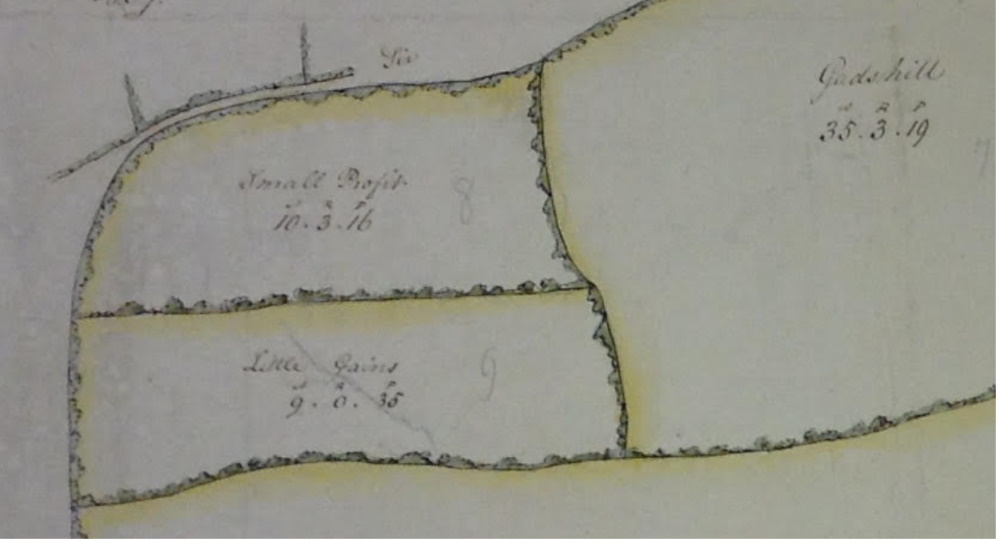 Sir
Gadshill
A R P
35. 3. 19
Small Profit
A R P
10. 3. 16
8
Little Gains
A R P
9. 0. 35
9
7